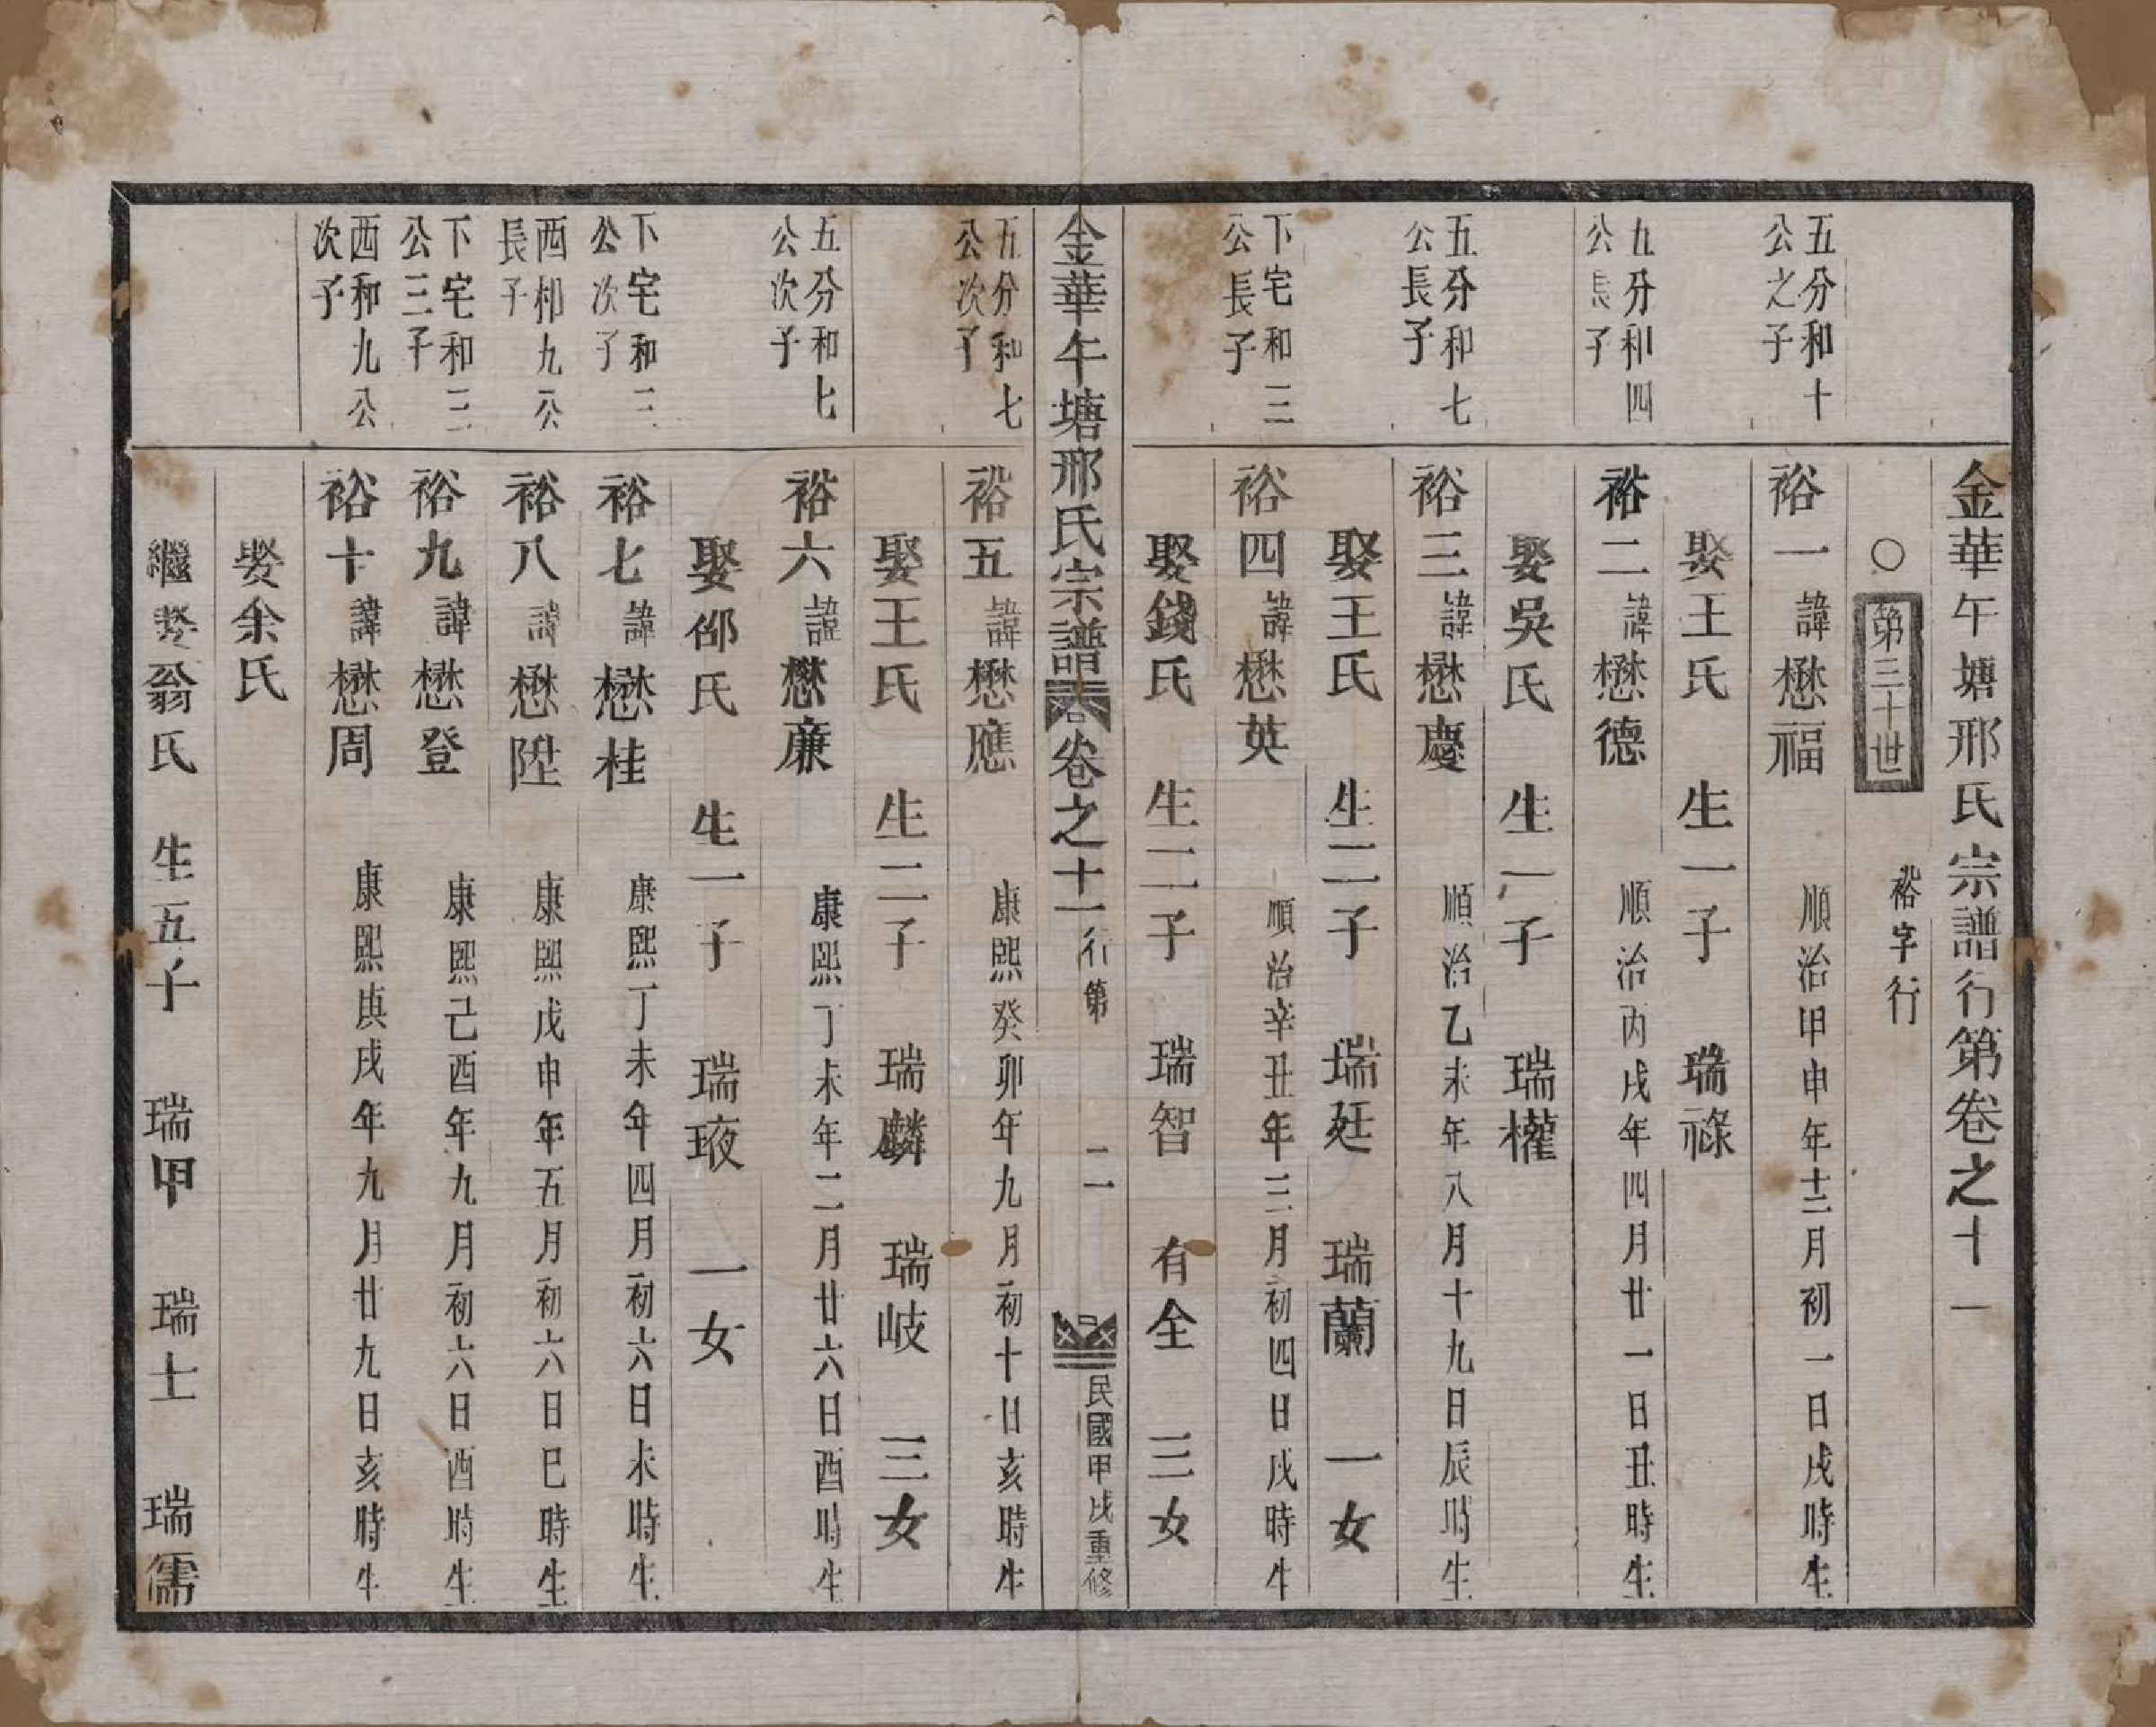 金華午塘邢氏宗譜行第卷之十一
○第三十世　裕字行
五分和十
公之子
裕一諱懋福　順治甲申年十二月初一日戌時生
娶王氏　生一子　瑞祿
五分和四
公長子
裕二諱懋德　順治丙戌年四月廿一日丑時生
娶吳氏　生一子　瑞權
五分和七
公長子
裕三諱懋慶　順治乙未年八月十九日辰時生
娶王氏　生二子　瑞廷　瑞蘭　一女
下宅和三
公長子
裕四諱懋英　順治辛丑年三月初四日戌時生
娶錢氏　生二子　瑞智　有全　三女
金華午塘邢氏宗譜卷之十一行第　二　民國甲戌重修
五分和七
公次子
裕五諱懋應　康熙癸卯年九月初十日亥時生
娶王氏　生二子　瑞麟　瑞岐　三女
五分和七
公次子
裕六諱懋亷　康熙丁未年二月廿六日酉時生
娶邵氏　生一子　瑞㻎　一女
下宅和三
公次子
裕七諱懋桂　康熙丁未年四月初六日未時生
西和九公
長子
裕八諱懋陞　康熙戊申年五月初六日巳時生
下宅和三
公三子
裕九諱懋登　康熙己酉年九月初六日酉時生
西和九公
次子
裕十諱懋周　康熙庚戌年九月廿九日亥時生
娶余氏
繼娶翁氏　生五子　瑞甲　瑞士　瑞儒